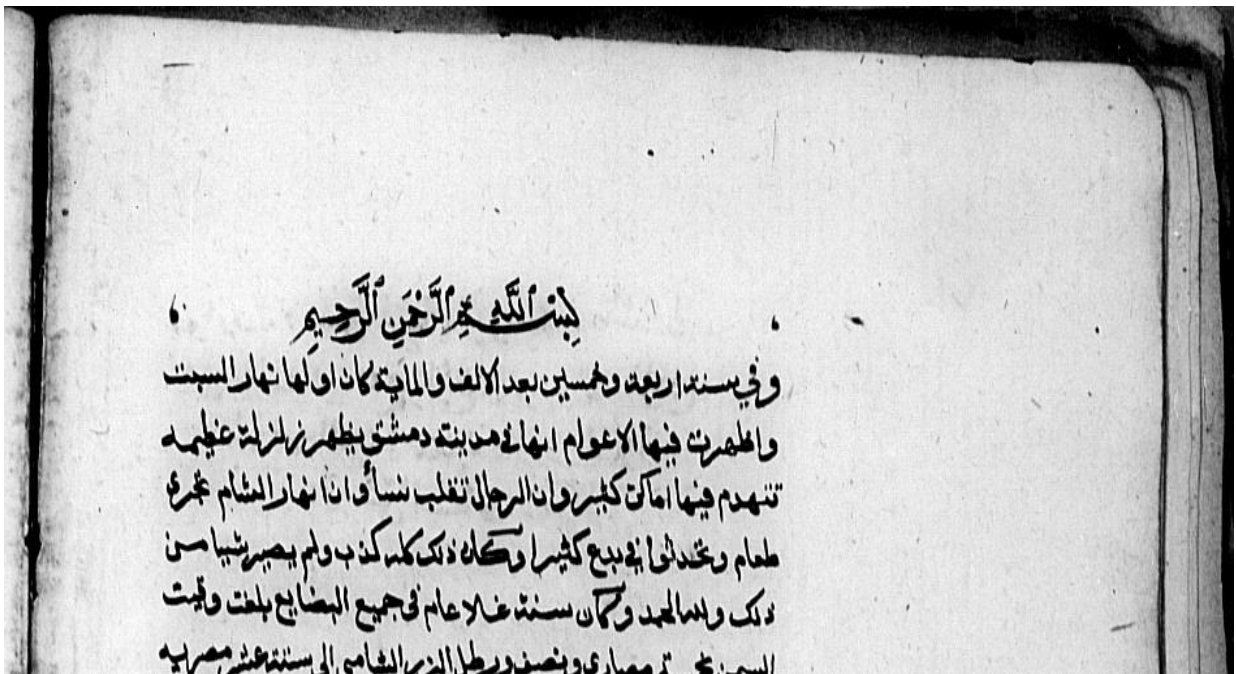 بِسْمِ ٱللَّهِ ٱلرَّحْمَنِ ٱلرَّحِيمِ
وفي سنة اربعة وخمسين بعد الالف والماية كان اولها نهار السبت
واظهرت فيها الاعوام انها في مدينة دمشق يظهر زلزلة عظيمه
تنهدم فيها اماكن كثير وان الرجال تنقلب نسأ وان انهار الشام تجري
طعام وتحدثوا في بدع كثيرا وكان ذلك كله كذب ولم يصير شيا من
ذلك ولله الحمد وكان سنة غلا عام في جميع البضايع بلغت وقيت
السمن مصاري ونصف ورطل الشامي الى ستة عشر مصريه